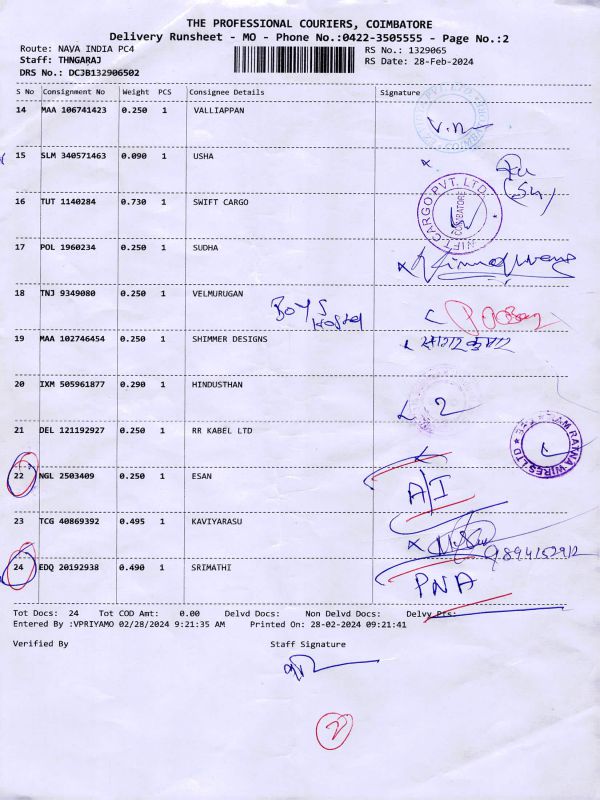 THE PROFESSIONAL COURIERS, COIMBATORE
Delivery Runsheet - MO - Phone No.:0422-3505555 - Page No.:2
Route: NAVA INDIA PC4 RS No.: 1329065
Staff: THNGARAJ RS Date: 28-Feb-2024
DRS No.: DCJB132906502
S No Consignment No Weight PCS Consignee Details Signature
14 MAA 106741423 0.250 1 VALLIAPPAN
15 SLM 340571463 0.090 1 USHA
16 TUT 1140284 0.730 1 SWIFT CARGO
SWIFT CARGO PVT. LTD. COIMBATORE
17 POL 1960234 0.250 1 SUDHA
18 TNJ 9349080 0.250 1 VELMURUGAN
BOYS
Hostel
19 MAA 102746454 0.250 1 SHIMMER DESIGNS
20 IXM 505961877 0.290 1 HINDUSTHAN
21 DEL 121192927 0.250 1 RR KABEL LTD
RAM RATNA WIRES LTD
22 NGL 2503409 0.250 1 ESAN A/I
23 TCG 40869392 0.495 1 KAVIYARASU
9894152912
24 EDQ 20192938 0.490 1 SRIMATHI PNA
Tot Docs: 24 Tot COD Amt: 0.00 Delvd Docs: Non Delvd Docs: Delvy Pts:
Entered By :VPRIYAMO 02/28/2024 9:21:35 AM Printed On: 28-02-2024 09:21:41
Verified By Staff Signature
2